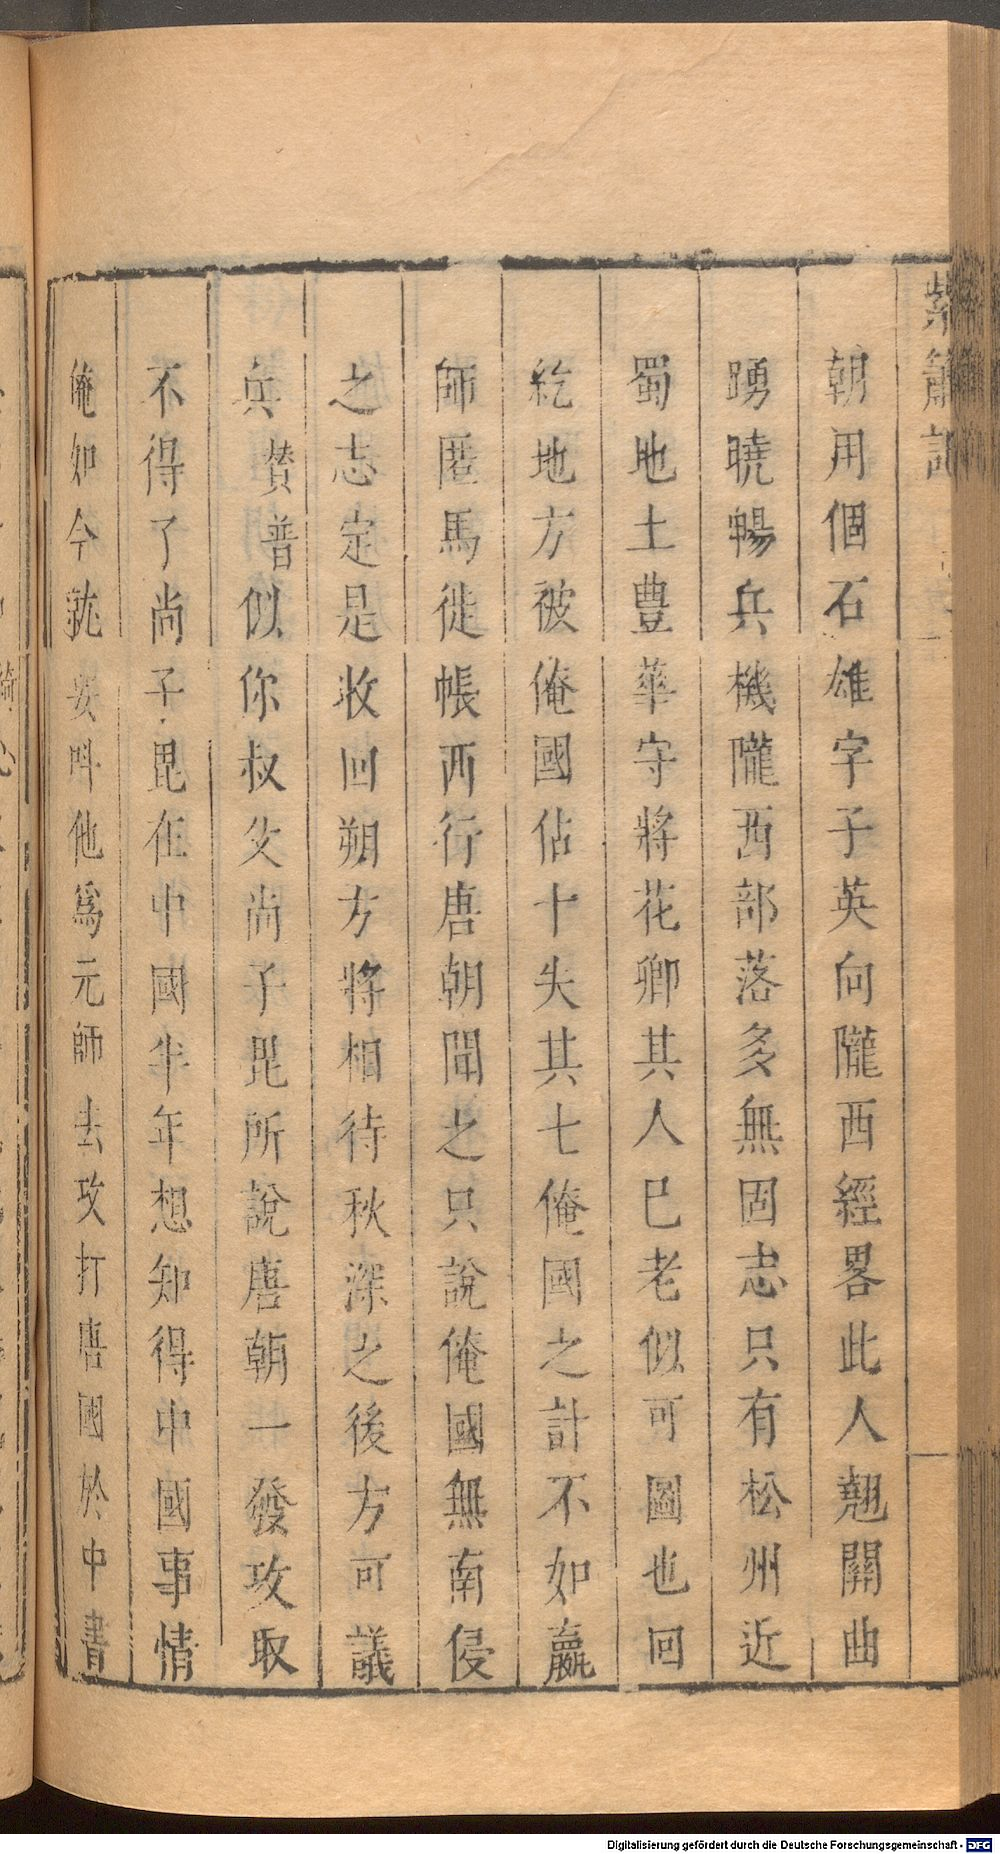 紫簫記
朝用個石雄字子英向隴西經畧此人翹關曲
踴曉暢兵機隴西部落多無固志只有松州近
蜀地土豊華守將花卿其人巳老似可圖也回
紇地方被俺國佔十失其七俺國之計不如羸
師匿馬徙帳西行唐朝聞之只說俺國無南侵
之志定是收回朔方將相待秋深之後方可議
兵贊普似你叔父尚子毘所說唐朝一發攻取
不得了尚子毘在中國半年想知得中國事情
俺如今就要呌他爲元師去攻打唐國於中書
Digitalisierung gefördert durch die Deutsche Forschungsgemeinschaft - DFG